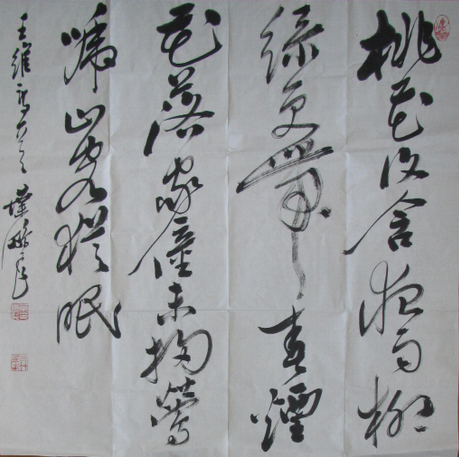 桃花復含宿雨柳
綠更帶春煙
花落家僮未掃鶯
啼山客猶眠
王維